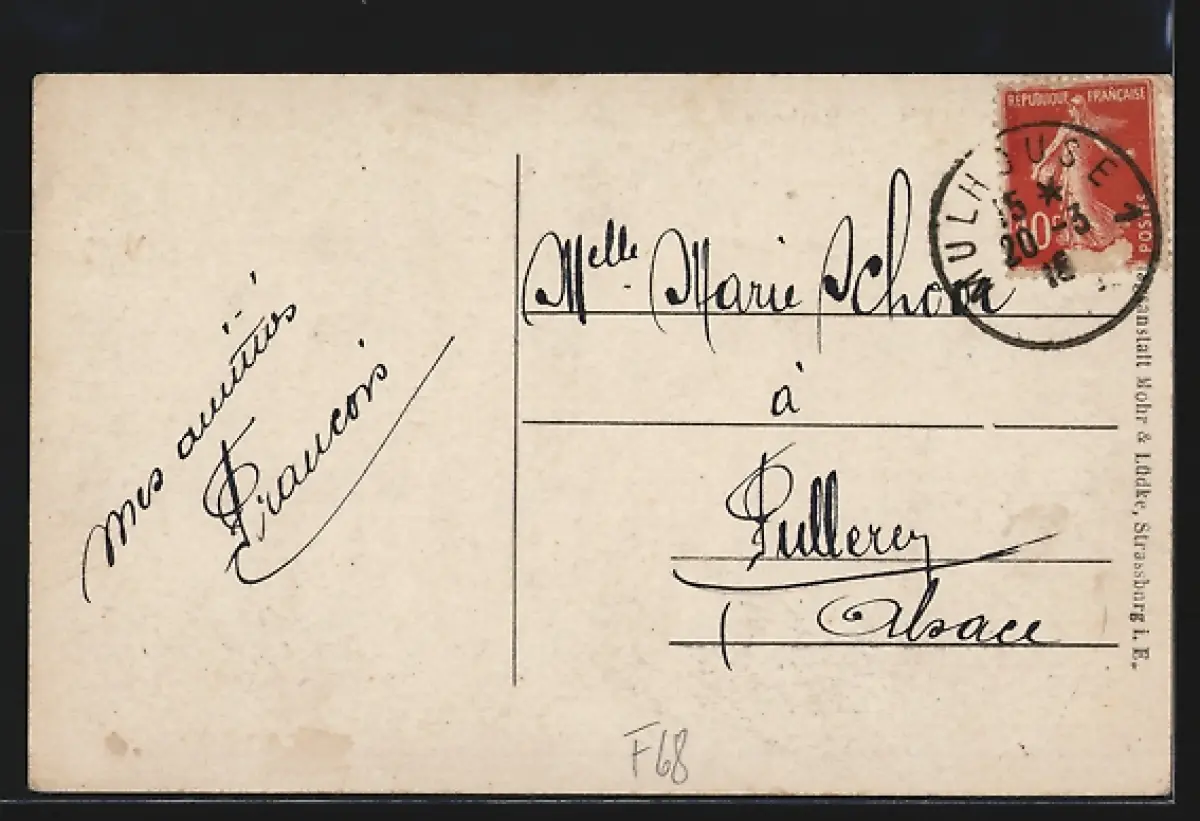 mes amitiés
François
Melle. Marie Schorr
à
Pullerey
(Alsace
REPUBLIQUE FRANÇAISE
10c
POSTE
MULHOUSE 1
15 *
20 - 3
anstalt Mohr & Lüdke, Strassburg i. E.
F68